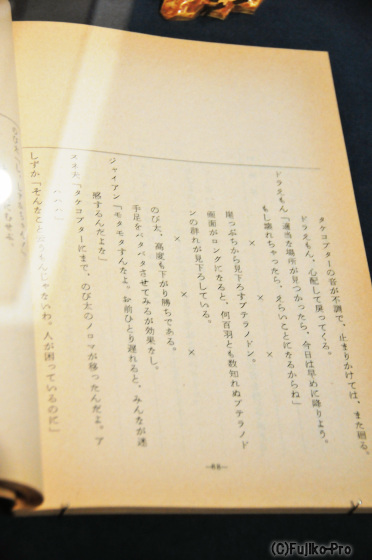 タケコプターの音が不調で、止まりかけては、また廻る。
ドラえもん、心配して戻ってくる。
ドラえもん「適当な場所が見つかったら、今日は早めに降りよう。
もし壊れちゃったら、えらいことになるからね」
× × ×
崖っぷちから見下ろすプテラノドン。
画面がロングになると、何百羽とも数知れぬプテラノド
ンの群れが見下ろしている。
× × ×
のび太、高度も下がり勝ちである。
手足をバタバタさせてみるが効果なし。
ジャイアン「モタモタすんなよ。お前ひとり遅れると、みんなが迷
惑するんだよな」
スネ夫「タケコプターにまで、のび太のノロマが移ったんだよ。ア
ハハハ」
しずか「そんなこと もんじゃないわ。人が困っているのに」
(C)Fujiko-Pro